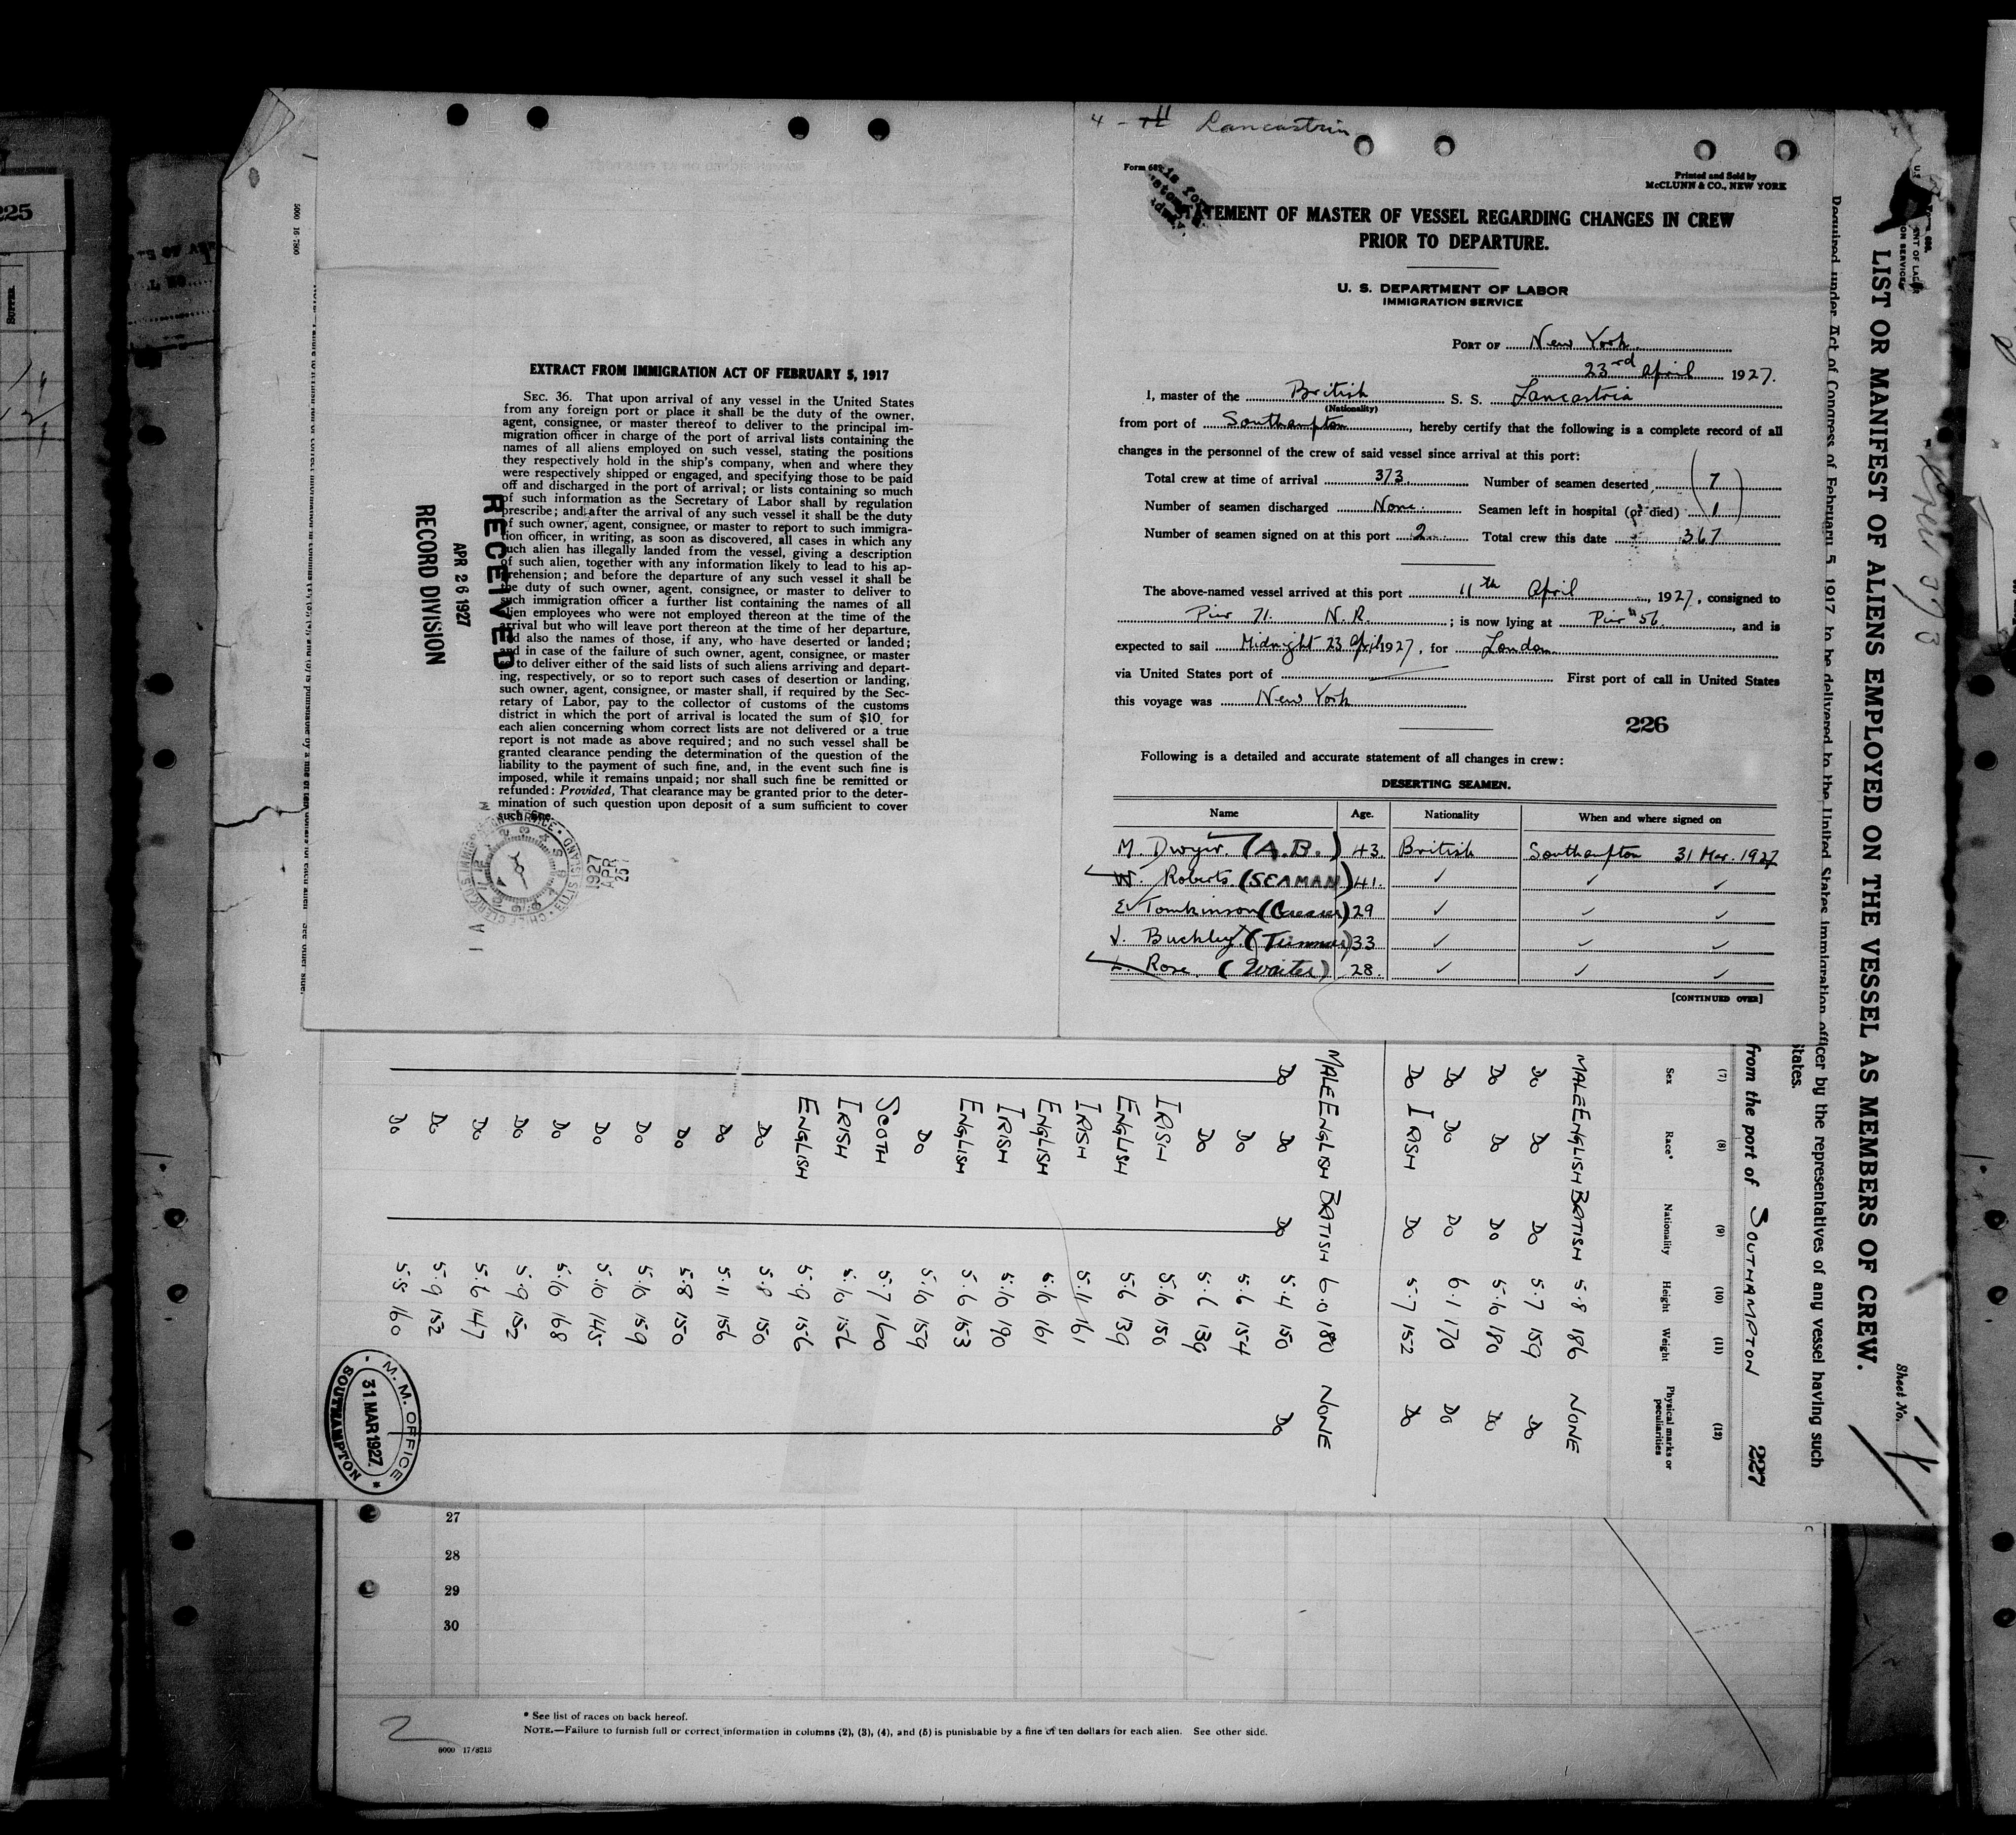 225
BUFFER.
5000 16-7800
EXTRACT FROM IMMIGRATION ACT OF FEBRUARY 5, 1917
SEC. 36. That upon arrival of any vessel in the United States
from any foreign port or place it shall be the duty of the owner,
agent, consignee, or master thereof to deliver to the principal im-
migration officer in charge of the port of arrival lists containing the
names of all aliens employed on such vessel, stating the positions
they respectively hold in the ship's company, when and where they
were respectively shipped or engaged, and specifying those to be paid
off and discharged in the port of arrival; or lists containing so much
of such information as the Secretary of Labor shall by regulation
prescribe; and after the arrival of any such vessel it shall be the duty
of such owner, agent, consignee, or master to report to such immigra-
tion officer, in writing, as soon as discovered, all cases in which any
such alien has illegally landed from the vessel, giving a description
of such alien, together with any information likely to lead to his ap-
prehension; and before the departure of any such vessel it shall be
the duty of such owner, agent, consignee, or master to deliver to
such immigration officer a further list containing the names of all
alien employees who were not employed thereon at the time of the
arrival but who will leave port thereon at the time of her departure,
and also the names of those, if any, who have deserted or landed;
and in case of the failure of such owner, agent, consignee, or master
so to deliver either of the said lists of such aliens arriving and depart-
ing, respectively, or so to report such cases of desertion or landing,
such owner, agent, consignee, or master shall, if required by the Sec-
retary of Labor, pay to the collector of customs of the customs
district in which the port of arrival is located the sum of $10 for
each alien concerning whom correct lists are not delivered or a true
report is not made as above required; and no such vessel shall be
granted clearance pending the determination of the question of the
liability to the payment of such fine, and, in the event such fine is
imposed, while it remains unpaid; nor shall such fine be remitted or
refunded: Provided, That clearance may be granted prior to the deter-
mination of such question upon deposit of a sum sufficient to cover
such fine.
RECEIVED
APR 26 1927
RECORD DIVISION
1927
APR
25
4 - Lancastria
Form 689
Printed and Sold by
McCLUNN & CO., NEW YORK
STATEMENT OF MASTER OF VESSEL REGARDING CHANGES IN CREW
PRIOR TO DEPARTURE.
U. S. DEPARTMENT OF LABOR
IMMIGRATION SERVICE
PORT OF New York
23rd April 1927.
I, master of the British S. S. Lancastria
(Nationality)
from port of Southampton, hereby certify that the following is a complete record of all
changes in the personnel of the crew of said vessel since arrival at this port:
Total crew at time of arrival 373. Number of seamen deserted (7
Number of seamen discharged None. Seamen left in hospital (or died) 1)
Number of seamen signed on at this port 2. Total crew this date 367
The above-named vessel arrived at this port 11th April, 1927, consigned to
Pier 71. N.R.; is now lying at Pier # 56., and is
expected to sail Midnight 23 April 1927, for London
via United States port of First port of call in United States
this voyage was New York
226
Following is a detailed and accurate statement of all changes in crew:
DESERTING SEAMEN.
Name Age. Nationality When and where signed on
M. Dwyer. (A.B.) 43. British Southampton 31 Mar. 1927
W. Roberts (SEAMAN) 41. ✓ ✓ ✓
E. Tomkinson (Greaser) 29 ✓ ✓ ✓
J. Buckley (Trimmer) 33 ✓ ✓ ✓
L. Rose. (Waiter) 28. ✓ ✓ ✓
[CONTINUED OVER]
Sheet No.
LIST OR MANIFEST OF ALIENS EMPLOYED ON THE VESSEL AS MEMBERS OF CREW.
Required under Act of Congress of February 5, 1917, to be delivered to the United States immigration officer by the representatives of any vessel having such
States.
from the port of SOUTHAMPTON 227
(7) (8) (9) (10) (11) (12)
Sex Race* Nationality Height Weight Physical marks or peculiarities
MALE ENGLISH BRITISH 5.8 186 NONE
Do Do Do 5.7 159 Do
Do Do Do 5.10 180 Do
Do Do Do 6.1 170 Do
Do IRISH Do 5.7 152 Do
MALE ENGLISH BRITISH 6.0 180 NONE
Do Do Do 5.4 150 Do
Do 5.6 154
Do 5.6 139
IRISH 5.10 150
ENGLISH 5.6 139
IRISH 5.11 161
ENGLISH 5.10 161
IRISH 5.10 190
ENGLISH 5.6 153
Do 5.10 159
SCOTH 5.7 160
IRISH 5.10 156
ENGLISH 5.9 156
Do 5.8 150
Do 5.11 156
Do 5.8 150
Do 5.10 159
Do 5.10 145
Do 5.10 168
Do 5.9 152
Do 5.6 147
Do 5.9 152
Do 5.5 160
M. M. OFFICE
31 MAR 1927.
SOUTHAMPTON
27
28
29
30
* See list of races on back hereof.
NOTE.—Failure to furnish full or correct information in columns (2), (3), (4), and (5) is punishable by a fine of ten dollars for each alien. See other side.
2
8000 17/8213